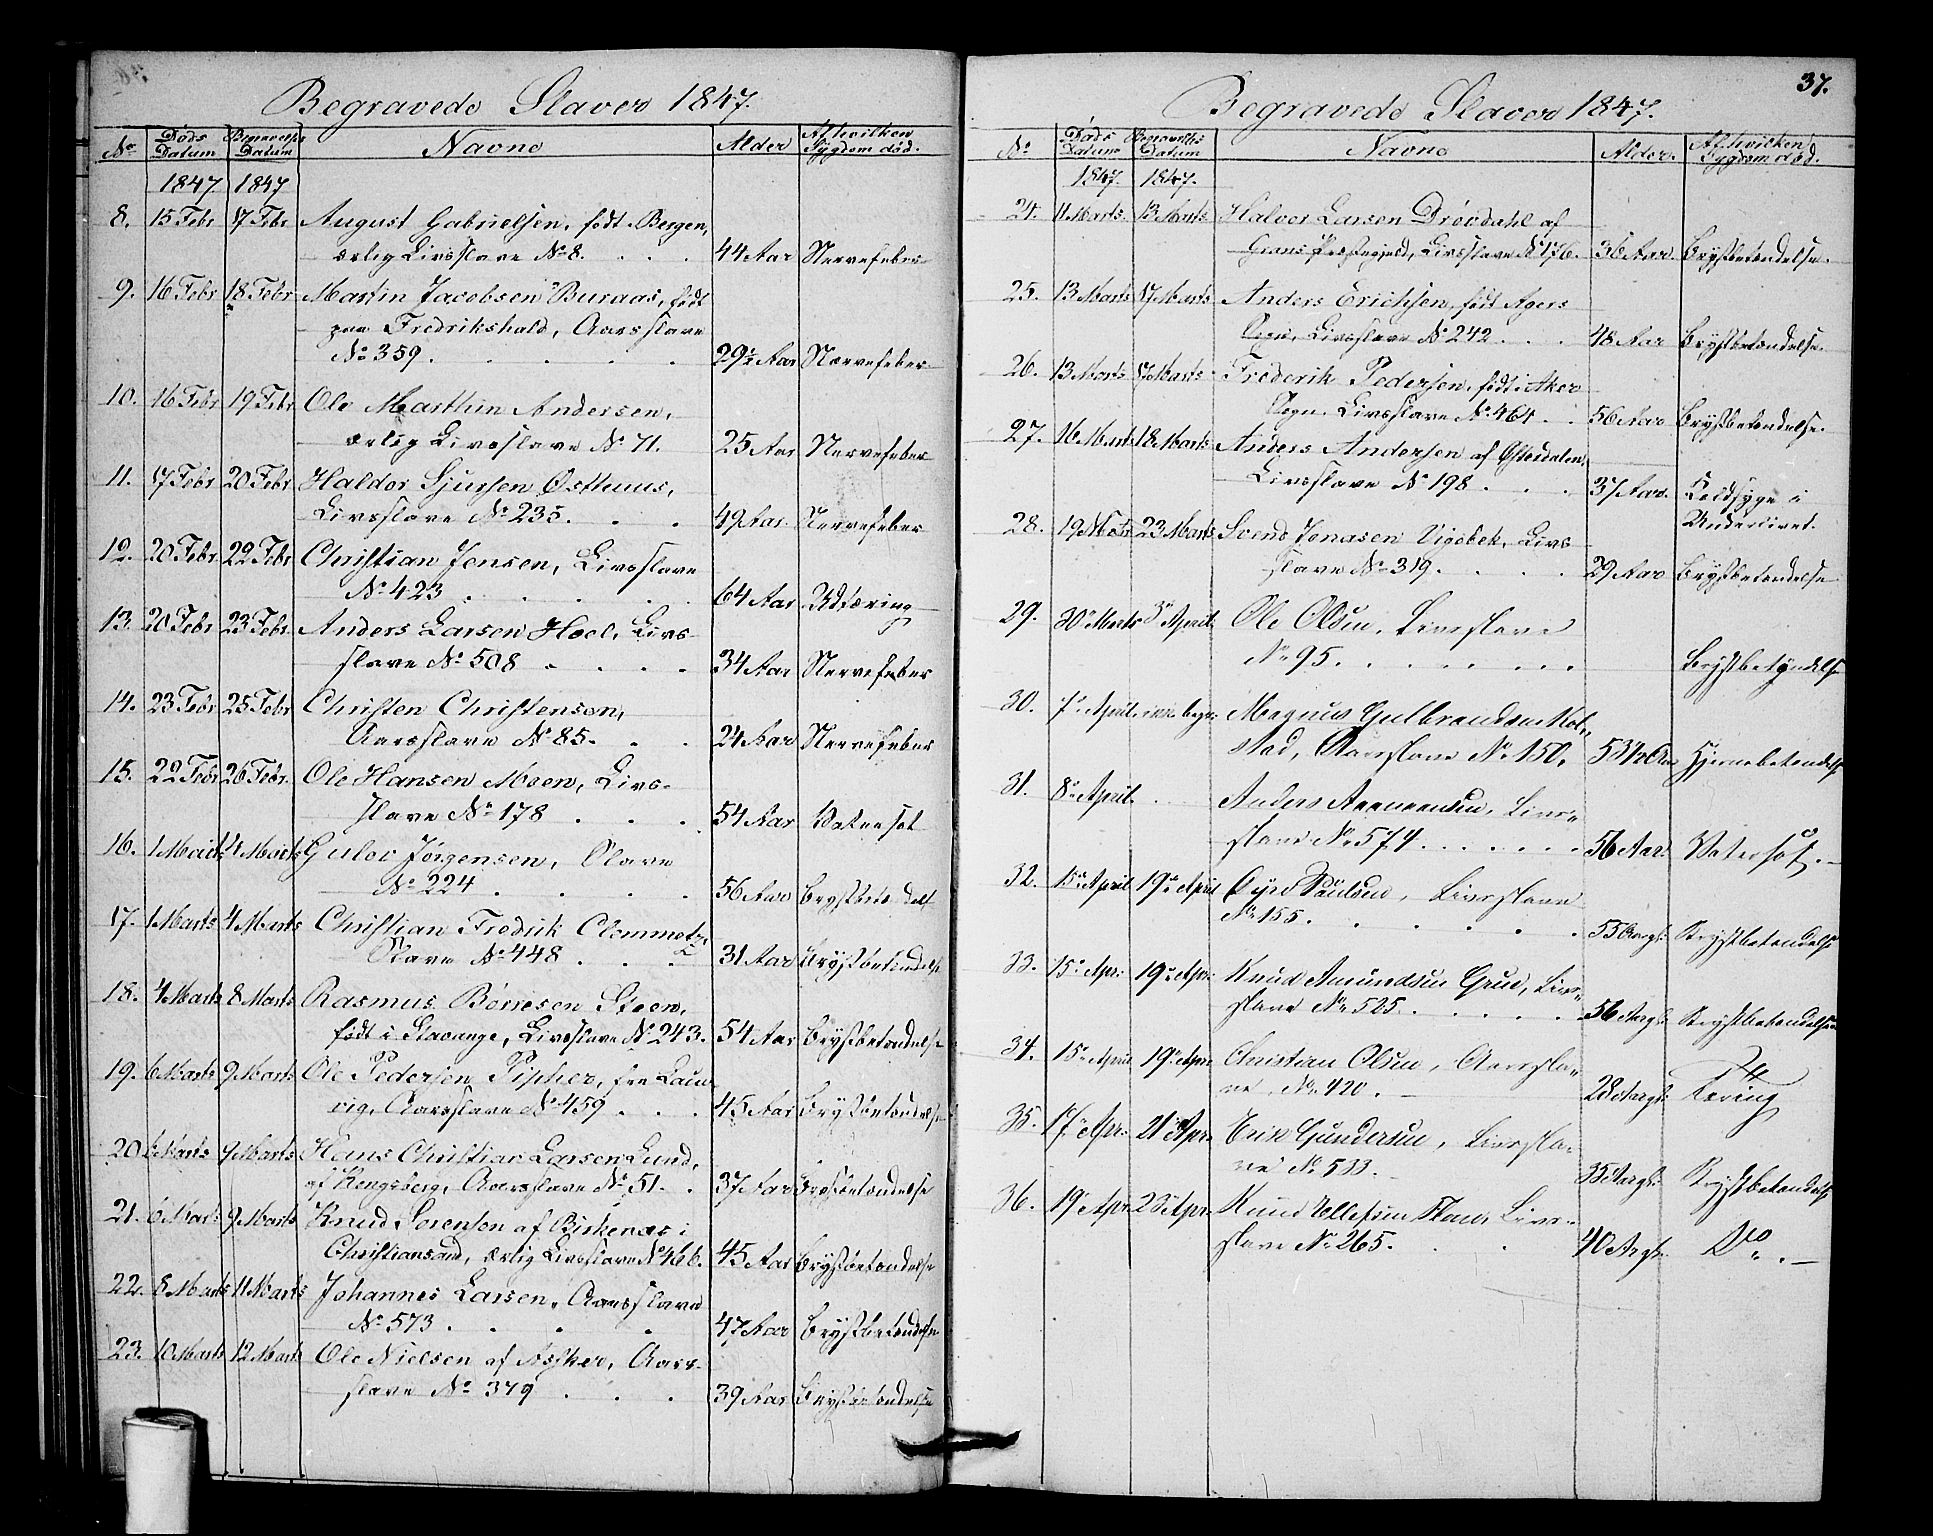 Begravede Slaver 1847.
No Døds Datum Begravelses Datum Navne Alder Af hvilken Sygdom død.
1847 1847
8. 15 Febr 17 Febr August Gabrielsen, født i Bergen,
ærlig Livsslave No 8. . . . 44 Aar Nervefeber
9. 16 Febr 18 Febr Martin Jacobsen Buraas, født
paa Fredrikshald, Aarsslave
No 359. . . . . 29½ Aar Nervefeber
10. 16 Febr 19 Febr Ole Marthin Andersen,
ærlig Livsslave No 71. 25 Aar Nervefeber
11. 17 Febr 20 Febr Haldor Sjursen Østhuus,
Livsslave No 235. . . . 49 Aar. Nervefeber
12. 20 Febr 22 Febr Christian Jensen, Livsslave
No 423 . . . . . 64 Aar. Udtæring
13. 20 Febr 23 Febr Anders Larsen Hoel, Livs-
slave No 508 . . . . 34 Aar Nervefeber
14. 23 Febr 25 Febr Christen Christensen,
Aarsslave No 85. . . 24 Aar Nervefeber
15. 22 Febr 26 Febr. Ole Hansen Moen, Livs-
slave No 178 . . . 54 Aar Vatersot
16. 1 Marts 4 Marts Gulov Jørgensen, Slave
No 224 . . . . 56 Aar Brystbetændelse
17. 1 Marts 4 Marts Christian Fredrik Clemmetz,
Slave No 448 . . . 31 Aar Brystbetændelse
18. 4 Marts 8 Marts Rasmus Børresen Steen,
født i Stavange, Livsslave No 243. 54 Aar Brystbetændelse
19. 6 Marts 9 Marts Ole Pedersen Pipher, fra Laur-
vig, Aarsslave No 459 . . . 45 Aar Brystbetændelse
20. 6 Marts 9 Marts Hans Christian Larsen Lund,
af Kongsberg, Aarsslave No 51. . 37 Aar Brystbetændelse
21. 6 Marts 9 Marts Knud Sørensen af Birkenæs i
Christiansand, ærlig Livsslave No 466. 45 Aar Brystbetændelse
22. 8 Marts 11 Marts Johannes Larsen, Aarsslave
No 573 . . . . 47 Aar Brystbetændelse
23. 10 Marts 12 Marts Ole Nielsen af Asker, Aars-
slave No 379 . . . 39 Aar Brystbetændelse
37.
Begravede Slaver 1847.
No Døds Datum Begravelses Datum Navne Alder. Af hvilken Sygdom død.
1847. 1847.
24. 11 Marts 13 Marts Halvor Larsen Drøvdahl af
Grans Præstegjeld, Livsslave No 176. 36 Aar Brystbetændelse.
25. 13 Marts 17 Marts Anders Erichsen, født Agers
Sogn, Livsslave No 242 . . . 48 Aar Brystbetændelse.
26. 13 Marts 17 Marts Frederik Pedersen, født i Aker
Sogn, Livsslave No 464 . . 56 Aar Brystbetændelse.
27. 16 Marts 18 Marts Anders Andersen af Østerdalen,
Livsslave No 198 . . . 37 Aar. Koldsyge i
Underlivet.
28. 19 Marts 23 Marts Svend Jonasen Vigebek, Livs
slave No 319. . . . . 29 Aar Brystbetændelse
29. 30 Marts 3 April Ole Olsen, Livsslave
No 95. . . . . . . . Brystbetændelse
30. 7 April Magnus Gulbrandsen Kol-
stad, Aarsslave No 150. 53½ Aar Hjernebetændelse
31. 8 April. . . Anders Livs-
slave No 574 . . . . . . 56 Aar. Vatersot. —
32. 15 April 19 April Livsslave
No 155. . . . . . . 55 Aargl: Brystbetændelse
33. 15 Apr: 19 Apr: Knud Amundsen Grue, Livs-
slave No 525. . . . . . 56 Aargl: Brystbetændelse
34. 15 April 19 Apr: Christian Olsen, Aarssla-
ve, No 420. — 28 Aargl: Tæring
35. 17 Apr: 21 Apr: Erik Gundersen, Livssla-
ve No 533. 35 Aargl: Brystbetændelse
36. 19 Apr: 23 Apr: Knud Livs-
slave No 265. . . 40 Aargl: Do. —